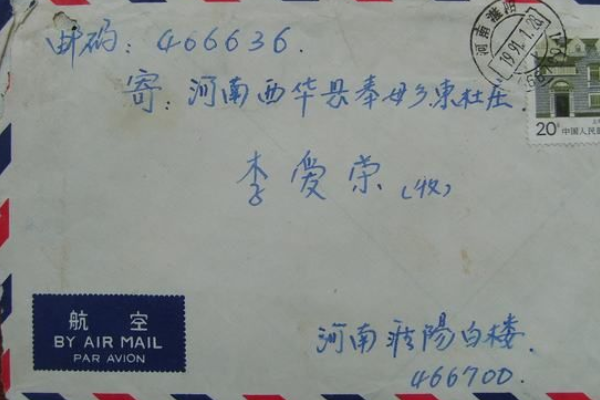 邮码：466636.
寄：河南西华县奉母乡東杜庄
李爱荣（收）
河南淮陽白楼.
466700.
航空
BY AIR MAIL
PAR AVION
河南淮阳
1991.1.28
20分
中国人民邮